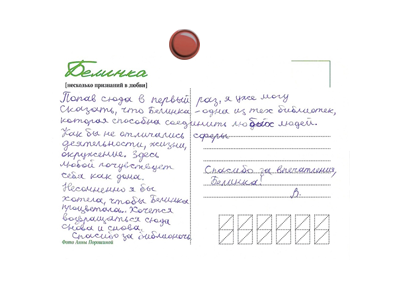 Белинка
[несколько признаний в любви]
Попав сюда в первый раз, я уже могу
сказать, что Белинка - одна из тех библиотек,
которая способна соединить любых людей.
Как бы не отличались сферы
деятельности, жизни,
окружение. Здесь
любой почувствует
себя как дома.
Несомненно я бы
хотела, чтобы Белинка
процветала. Хочется
возвращаться сюда
снова и снова.
Спасибо за библионочь
Спасибо за впечатления,
Белинка!
В.
Фото Анны Порошиной